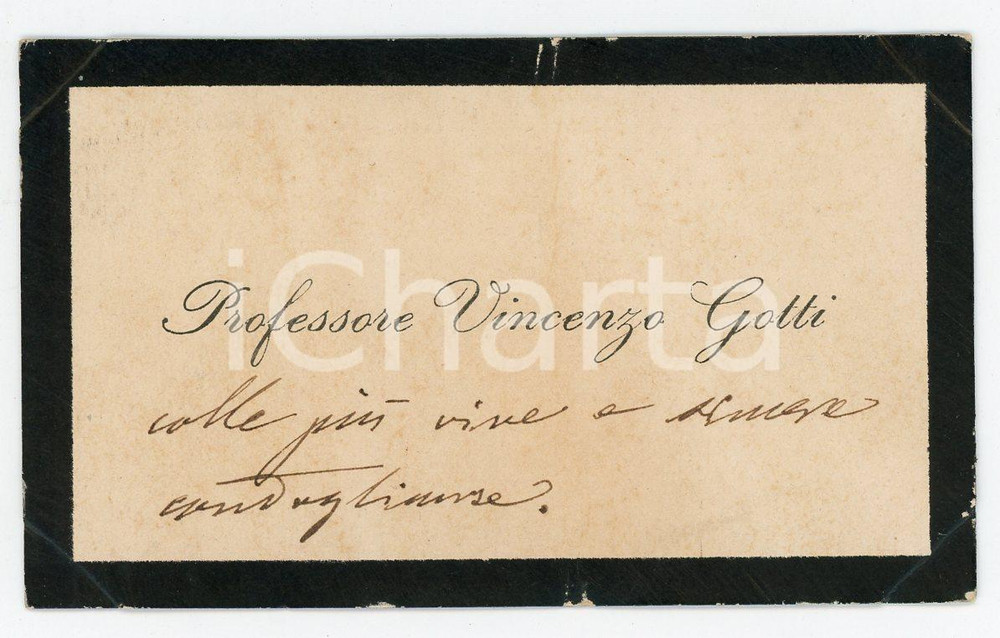 Professore Vincenzo Gotti
iCharta
colle più vive e sincere
condoglianze.